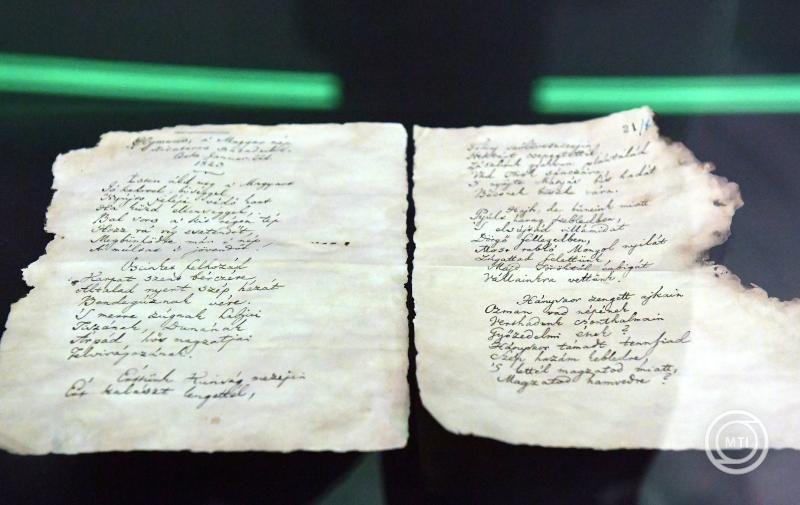 Hymnus, a' Magyar nép
zivataros századaiból.
Cseke Januar. 22d.
1823
Isten áldd meg a' Magyart
Jó kedvvel, bőséggel,
Nyújts feléje védő kart
Ha küzd ellenséggel,
Bal sors a' kit régen tép
Hozz rá víg esztendőt,
Megbűnhődte már e' nép
A' múltat s jövendőt.
Őseinket felhozád
Kárpát szent bérczére,
Általad nyert szép hazát
Bendegúznak vére.
'S merre zúgnak habjai
Tiszának, Dunának
Árpád hős magzatjai
Felvirágozának.
Értünk Kunság mezején
Ért kalászt lengettél,
21/
zászlónk gyakran plántálád
Vad Török sánczára,
's nyögte Mátyás bús hadát
Bécsnek büszke vára.
Hajh, de bűneink miatt
Gyúlt harag kebledben,
's elsújtád villámidat
Dörgő fellegedben,
Most rabló Mongol nyilát
Zúgattad felettünk,
Majd Töröktől rabigát
Vállainkra vettünk.
Hányszor zengett ajkain
Ozman vad népének
Vert hadunk csonthalmain
Győzedelmi ének?
Hányszor támadt tenn fiad
Szép hazám kebledre,
's lettél magzatod miatt,
Magzatod hamvvedre?
MTI